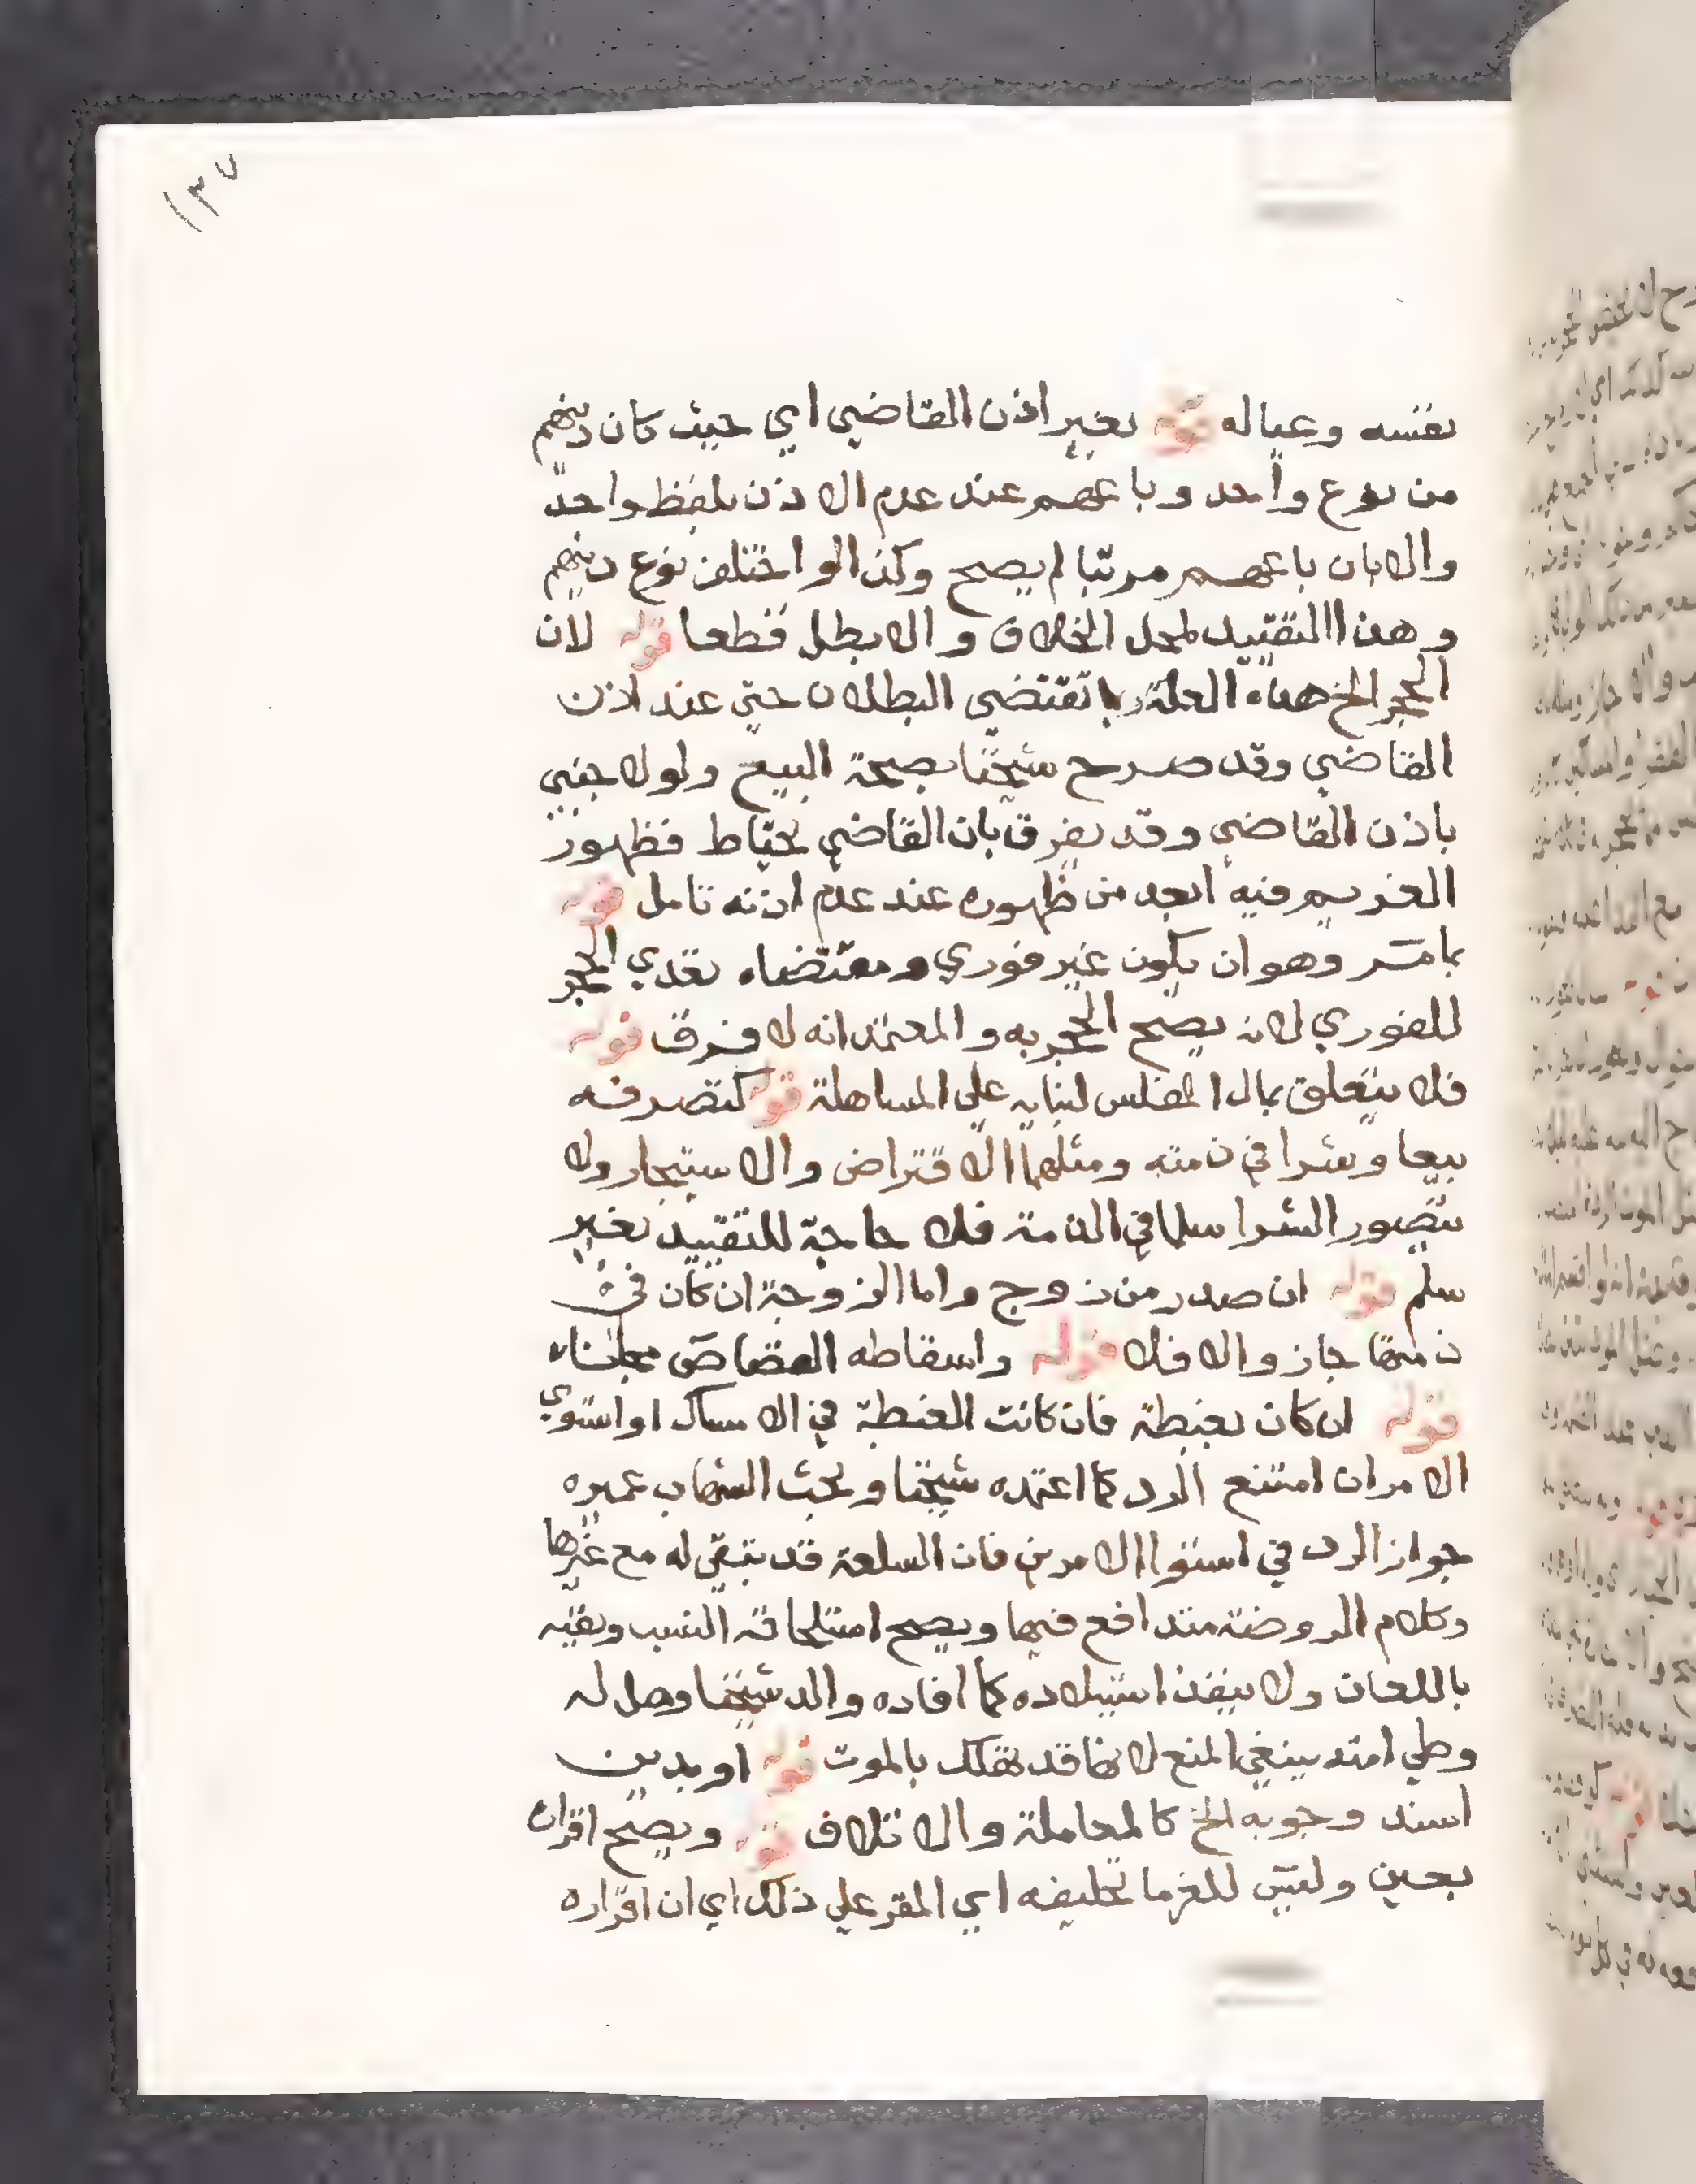 ١٣٧
نفسه وعياله قوله بغير اذن القاضي اي حيث كان دينهم
من نوع واحد وباعهم عند عدم الاذن بلفظ واحد
والا بان باعهم مرتبا لم يصح وكذا لو اختلف نوع دينهم
وهذا التقييد لمحل الخلاف والا بطل قطعا قوله لان
الحجر الخ هذه العلة ربما تقتضي البطلان حتى عند اذن
القاضي وقد صرح شيخنا بصحة البيع ولو لاجنبي
باذن القاضي وقد يفرق بان القاضي يحتاط فظهور
الغريم فيه ابعد من ظهوره عند عدم اذنه تامل قوله
بما مر وهو ان يكون غير فوري ومقتضاه تعدي الحجر
للفوري لانه يصح الحجر به والمعتمد انه لا فرق قوله
فلا يتعلق بمال المفلس لبنايه علي المساهلة قوله كتصرفه
بيعا وشرا في ذمته ومثلهما الاقتراض والاستيجار ولا
يتصور الشرا سلما في الذمة فلا حاجة للتقييد بغير
سلم قوله ان صدر من زوج واما الزوجة ان كان في
ذمتها جاز والا فلا قوله واسقاطه القصاص مجانا
قوله ان كان بغبطة فان كانت الغبطة في الامساك او استوي
الامران امتنع الرد كما اعتمده شيخنا وبحث الشهاب عميره
جواز الرد في استوا الامرين فان السلعة قد تبقي له مع غيرها
وكلام الروضة متدافع فيها ويصح استلحاقه النسب ونفيه
باللعان ولا ينفذ استيلاده كما افاده والد شيخنا وهل له
وطي امته ينبغي المنع لانها قد تهلك بالموت قوله او بدين
اسند وجوبه الخ كالمعاملة والاتلاف قوله ويصح اقراره
بعين وليس للغرما تحليفه اي المقر علي ذلك اي ان اقراره